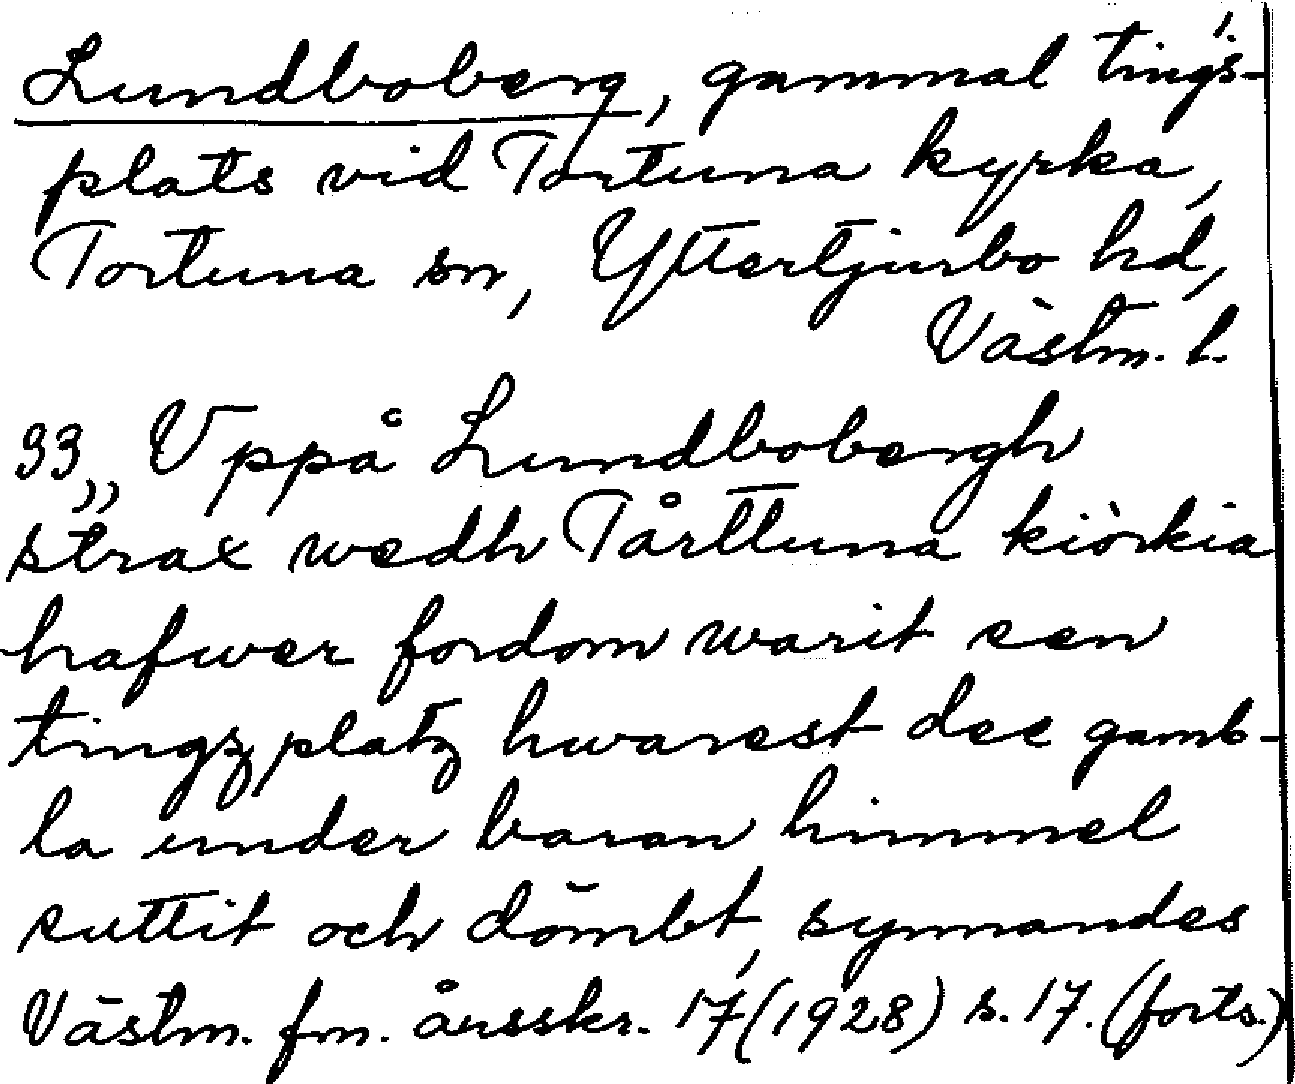 Lundboberg, gammal tings-
plats vid Tortuna kyrka,
Tortuna sn, Yttertjurbo hd,
Västm. l.
93,, Uppå Lundbobergh
strax wedh Tårttuna kiörkia
hafwer fordom warit een
tingzplatz hwarest dee gamb-
la under baran himmel
suttit och dömbt, synnandes
Västm. fm. årsskr. 17 (1928) s. 17. (forts.)